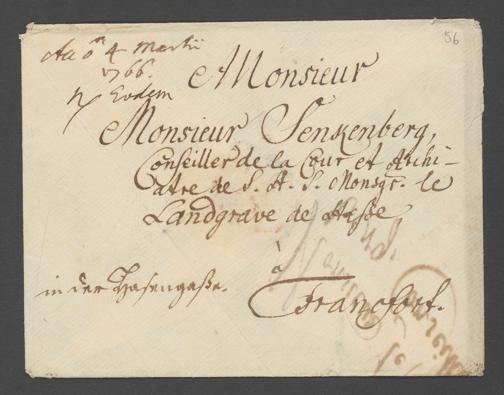 56
Acc. 4 Martii
1766.
Eodem
Monsieur
Monsieur Senkenberg,
Conseiller de la Cour et Archi-
atre de S. A. S. Monsgr. le
Landgrave de Haße
à
Francfort.
in der Hasengaße.